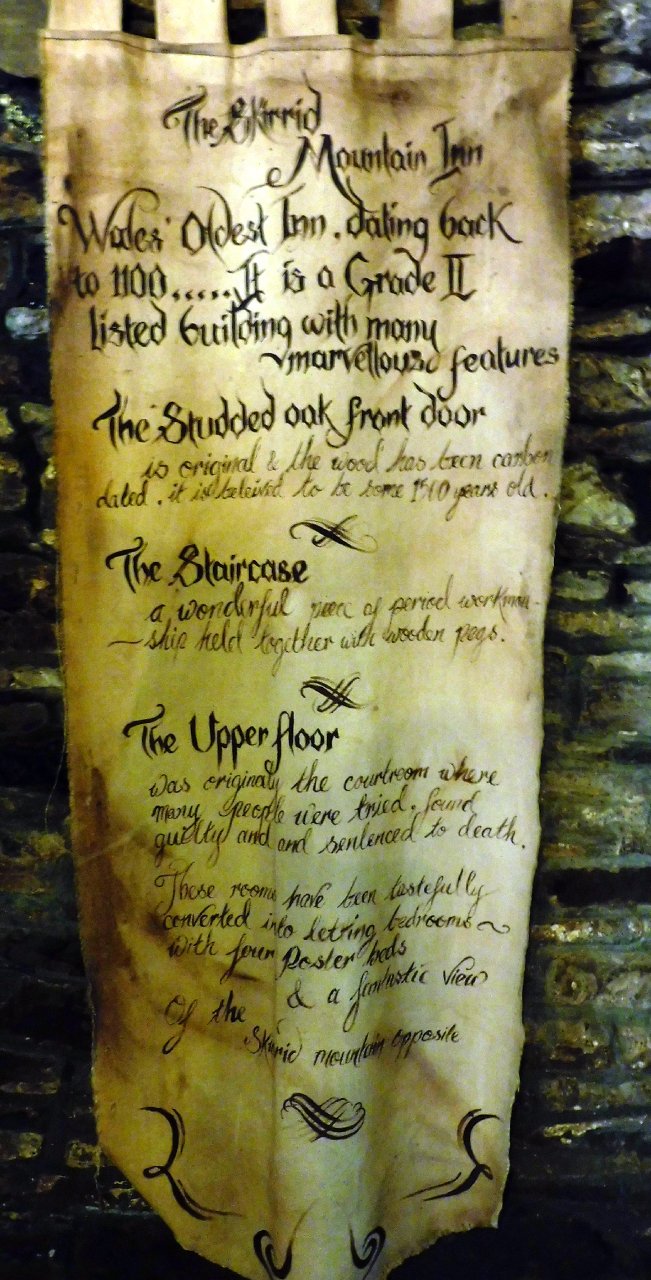 The Skirrid
Mountain Inn
Wales' Oldest Inn. dating back
to 1100.....It is a Grade II
listed building with many
~marvellous features
The Studded oak front door
is original & the wood has been carbon
dated. it is beleived to be some years old.
The Staircase
a wonderful piece of period workman-
—ship held together with wooden pegs.
The Upper floor
was originaly the courtroom where
many people were tried. found
guilty and and sentenced to death.
These rooms have been tastefully
converted into letting bedrooms~
with four Poster beds
& a fantastic view
Of the
Skirrid mountain opposite